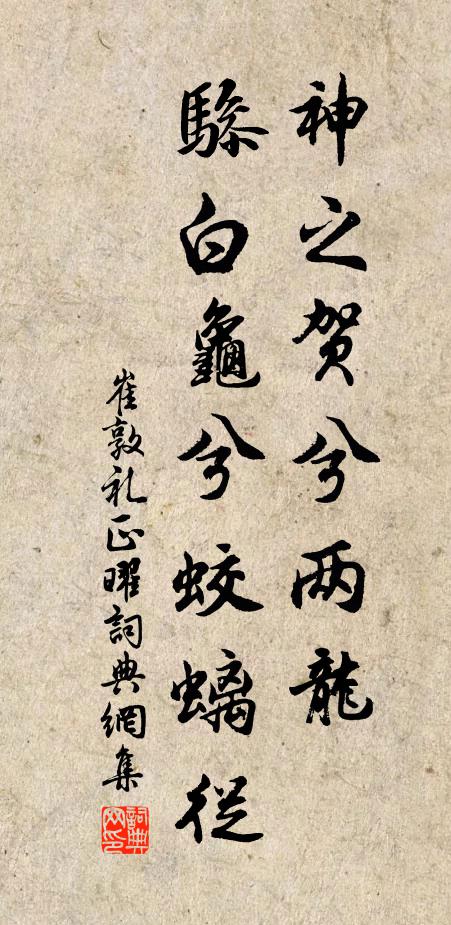 神之贺兮两龙
骖白龟兮蛟螭从
崔敦礼正曜詞典網集
詞典网印